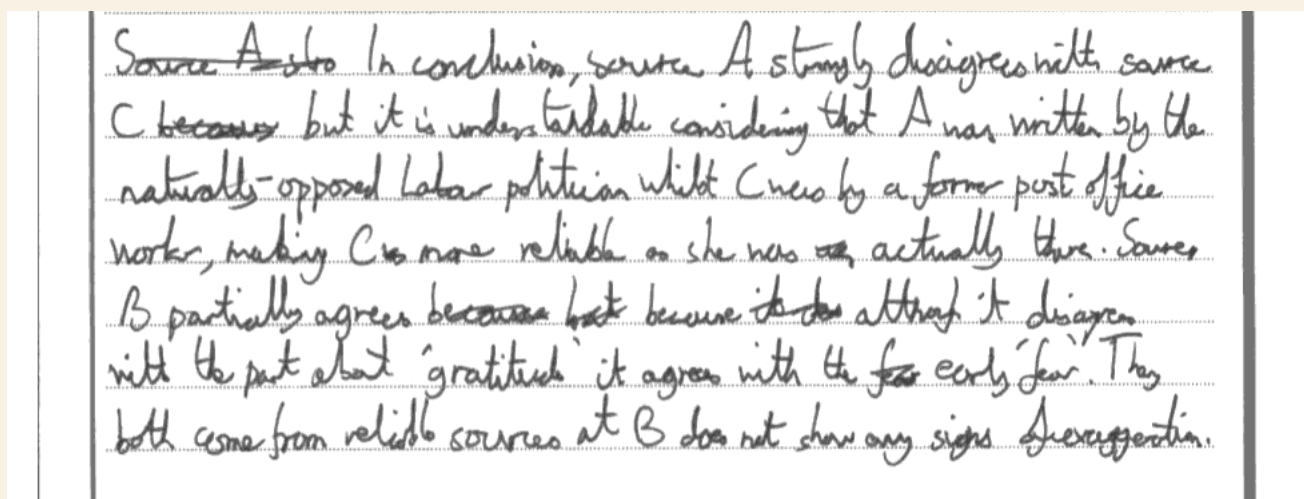 Source A stro In conclusion, source A strongly disagrees with source
C because but it is understandable considering that A was written by the
naturally-opposed Labour politician whilst C was by a former post office
worker, making C more reliable as she was actually there. Source
B partially agrees because but because it does although it disagrees
with the part about "gratitude" it agrees with the fear early "fear". They
both come from reliable sources at B does not show any signs of exaggeration.